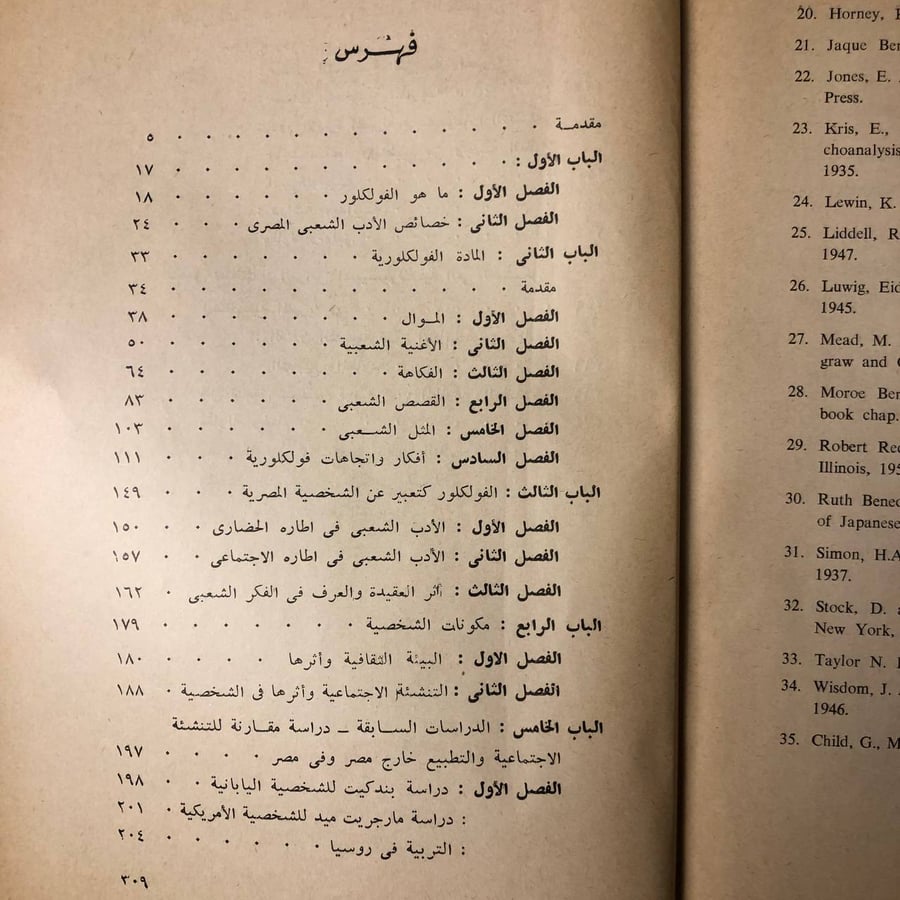 فهرس
مقدمــة . . . . . . . . . . . . . ٥
الباب الأول : . . . . . . . . . . . . ١٧
الفصل الأول : ما هو الفولكلور . . . . . . ١٨
الفصل الثانى : خصائص الأدب الشعبى المصرى . . . ٢٤
الباب الثانى : المادة الفولكلورية . . . . . . . ٣٣
مقدمة . . . . . . . . . . . . ٣٤
الفصل الأول : المـوال . . . . . . . . ٣٨
الفصل الثانى : الأغنية الشعبية . . . . . . ٥٠
الفصل الثالث : الفكاهة . . . . . . . . ٦٤
الفصل الرابع : القصص الشعبى . . . . . . ٨٣
الفصل الخامس : المثل الشـعبى . . . . . . ١٠٣
الفصل السادس : أفكار واتجاهات فولكلورية . . . ١١١
الباب الثالث : الفولكلور كتعبير عن الشخصية المصرية . . . ١٤٩
الفصل الأول : الأدب الشعبى فى اطاره الحضارى . . ١٥٠
الفصل الثانى : الأدب الشعبى فى اطاره الاجتماعى . . ١٥٧
الفصل الثالث : أثر العقيدة والعرف فى الفكر الشعبى . ١٦٢
الباب الرابع : مكونات الشخصية . . . . . . . ١٧٩
الفصل الاول : البيئة الثقافية وأثرها . . . . ١٨٠
الفصل الثانى : التنشئة الاجتماعية وأثرها فى الشخصية . ١٨٨
الباب الخامس : الدراسات السـابقة ــ دراسة مقـارنة للتنشئة
الاجتماعية والتطبيع خارج مصر وفى مصر . . . . ١٩٧
الفصل الأول : دراسة بندكيت للشخصية اليابانية . . . ١٩٨
: دراسة مارجريت ميد للشخصية الأمريكية . ٢٠١
: التربية فى روسيا . . . . . . ٢٠٤
٣٠٩
20. Horney,
21. Jaque
22. Jones, E.
Press.
23. Kris, E.,
choanalysis
1935.
24. Lewin, K.
25. Liddell,
1947.
26. Luwig,
1945.
27. Mead, M.
graw and
28. Moroe
book chap.
29. Robert
Illinois,
30. Ruth
of Japanese
31. Simon, H.A
1937.
32. Stock, D.
New York,
33. Taylor N.
34. Wisdom, J.
1946.
35. Child, G.,